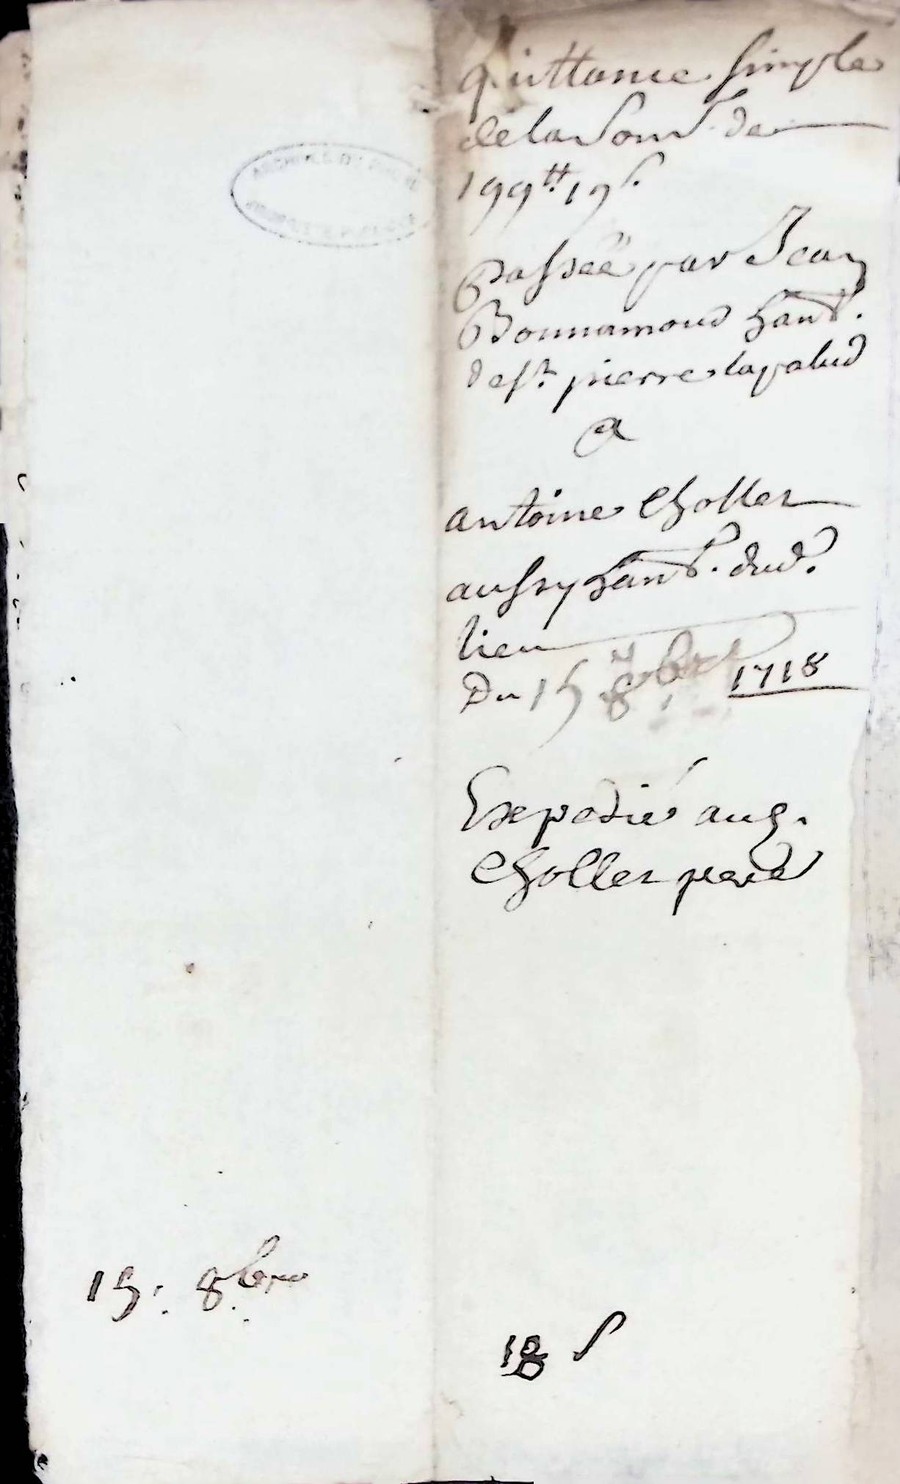 quittance simple
de la som.e de
199tt 19s.
Passée par Jean
Bonnamoud habt.
de st. pierre lapalud
A
antoine Choller
aussy habt. dud.
lieu
Du 15 8bre 1718
Expedié aud.
Choller pere
15. 8bre
18 s